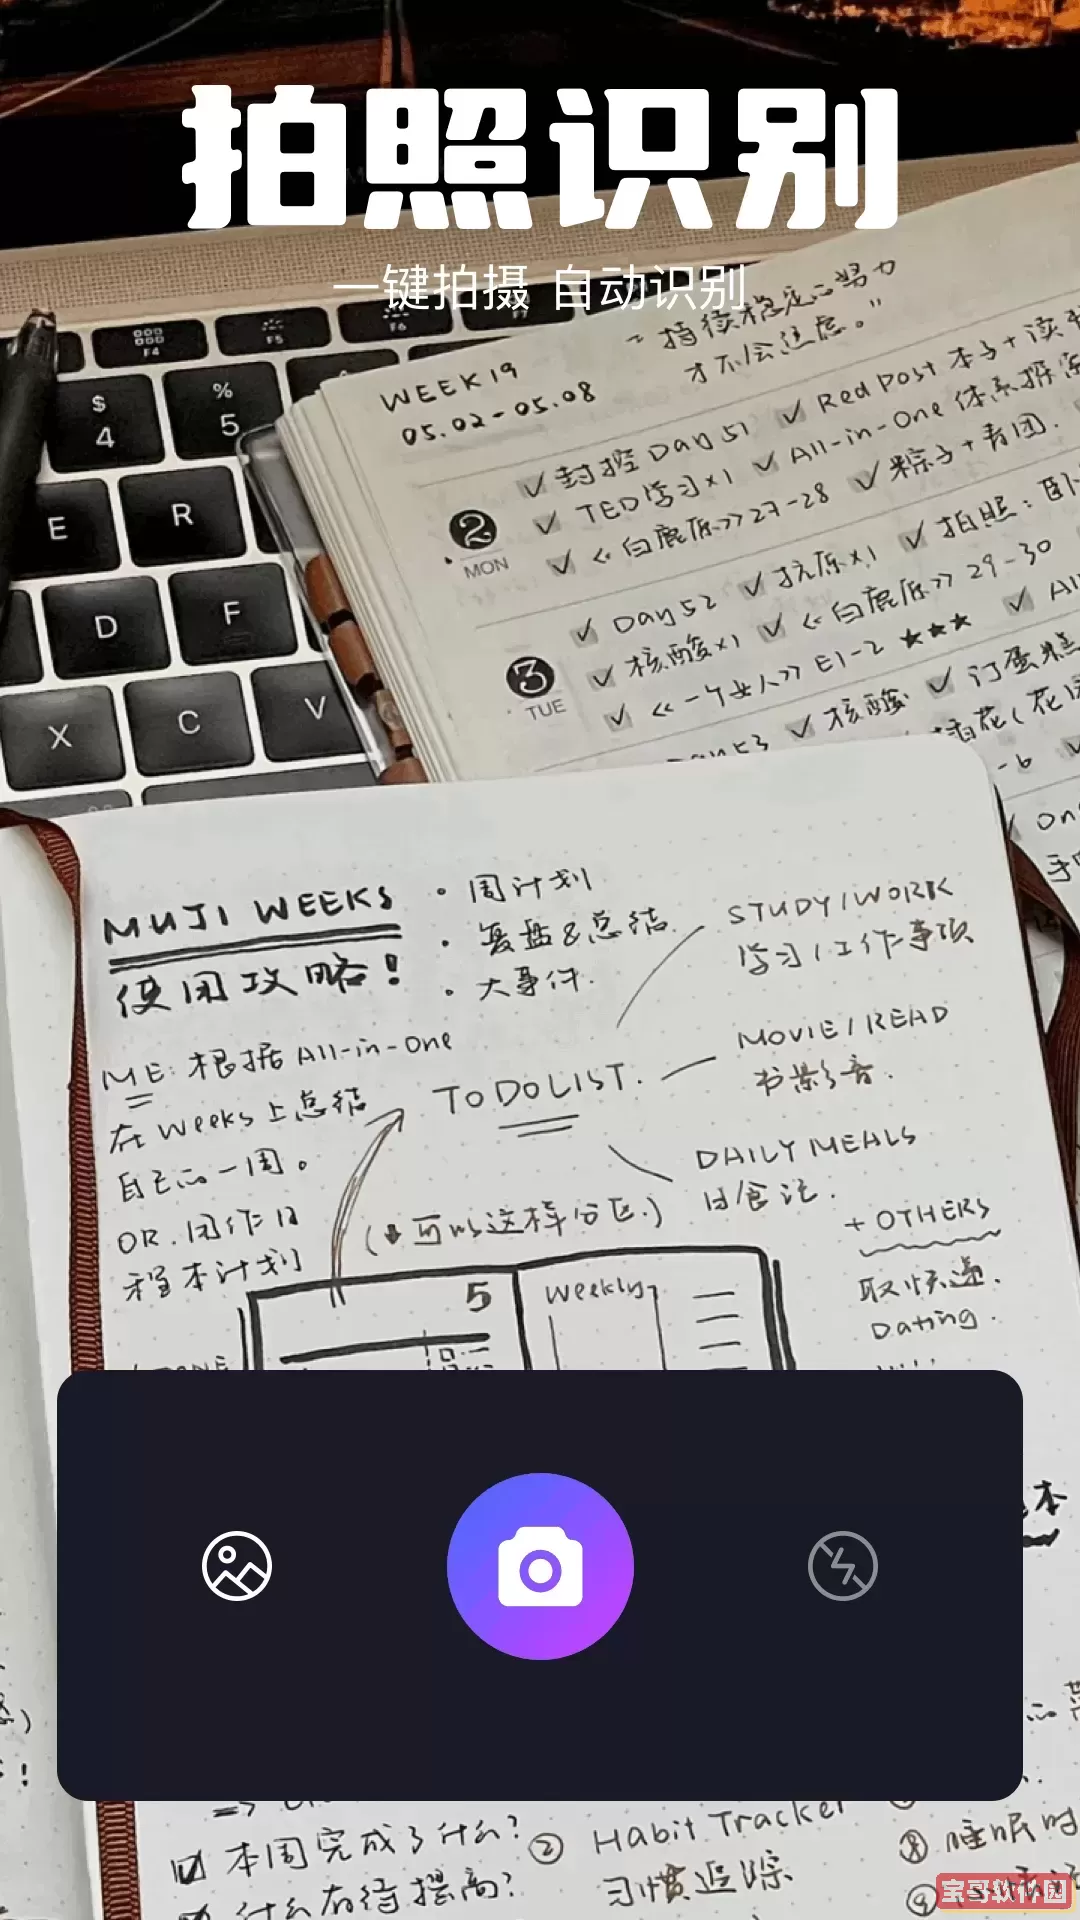 拍照识别
一键拍摄 自动识别
F4
F5
F6
F7
$
4
%
5
E
R
D
F
X
C
V
WEEK19
05.02-05.08
"持续稳定的努力
才不会焦虑。"
2
MON
✓封控Day 51 ✓Red Post 本子+读书
✓TED学习×1 ✓All-in-One 体系拆
✓《白鹿原》27-28 ✓粽子+青团.
3
TUE
✓Day 52 ✓抗原×1 ✓拍照:卧
✓核酸×1 ✓《白鹿原》29-30
✓《一个女人》E1-2 ★★★ ✓All
✓核酸 ✓订蛋糕
插花(花
-6
On
手
MUJI WEEKS
使用攻略!
·周计划
·复盘&总结
·大事件.
ME:根据All-in-One
在weeks上总结
自己的一周。
OR.用作日
程本计划
TO DO LIST.
STUDY/WORK
学习/工作事项
MOVIE/READ
书影音.
DAILY MEALS
日食记.
+OTHERS
取快递.
Dating.
(↓可以这样分区.)
5
Weekly
本
本周完成了什么?
什么有待提高?
② Habit Tracker
习惯追踪
⑧睡眠时
⑨
宝哥软件园